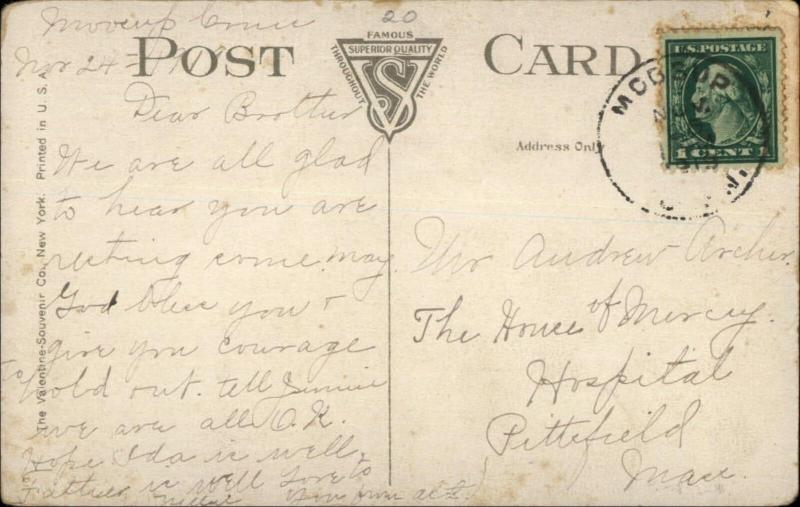 Moosup Conn
Nov 24
20
POST CARD
FAMOUS
SUPERIOR QUALITY
THROUGHOUT THE WORLD
VS
The Valentine-Souvenir Co., New York. Printed in U. S. A.
Dear Brother
We are all glad
to hear you are
resting some. may
God bless you &
give you courage
to hold out. tell Jennie
we are all O.K.
Hope Ida is well.
Father is well Love to
you from all.
Nellie
Address Only
U.S. POSTAGE
1 CENT 1
MOOSUP
Mr Andrew Archer.
The House of Mercy.
Hospital
Pittsfield
Mass.